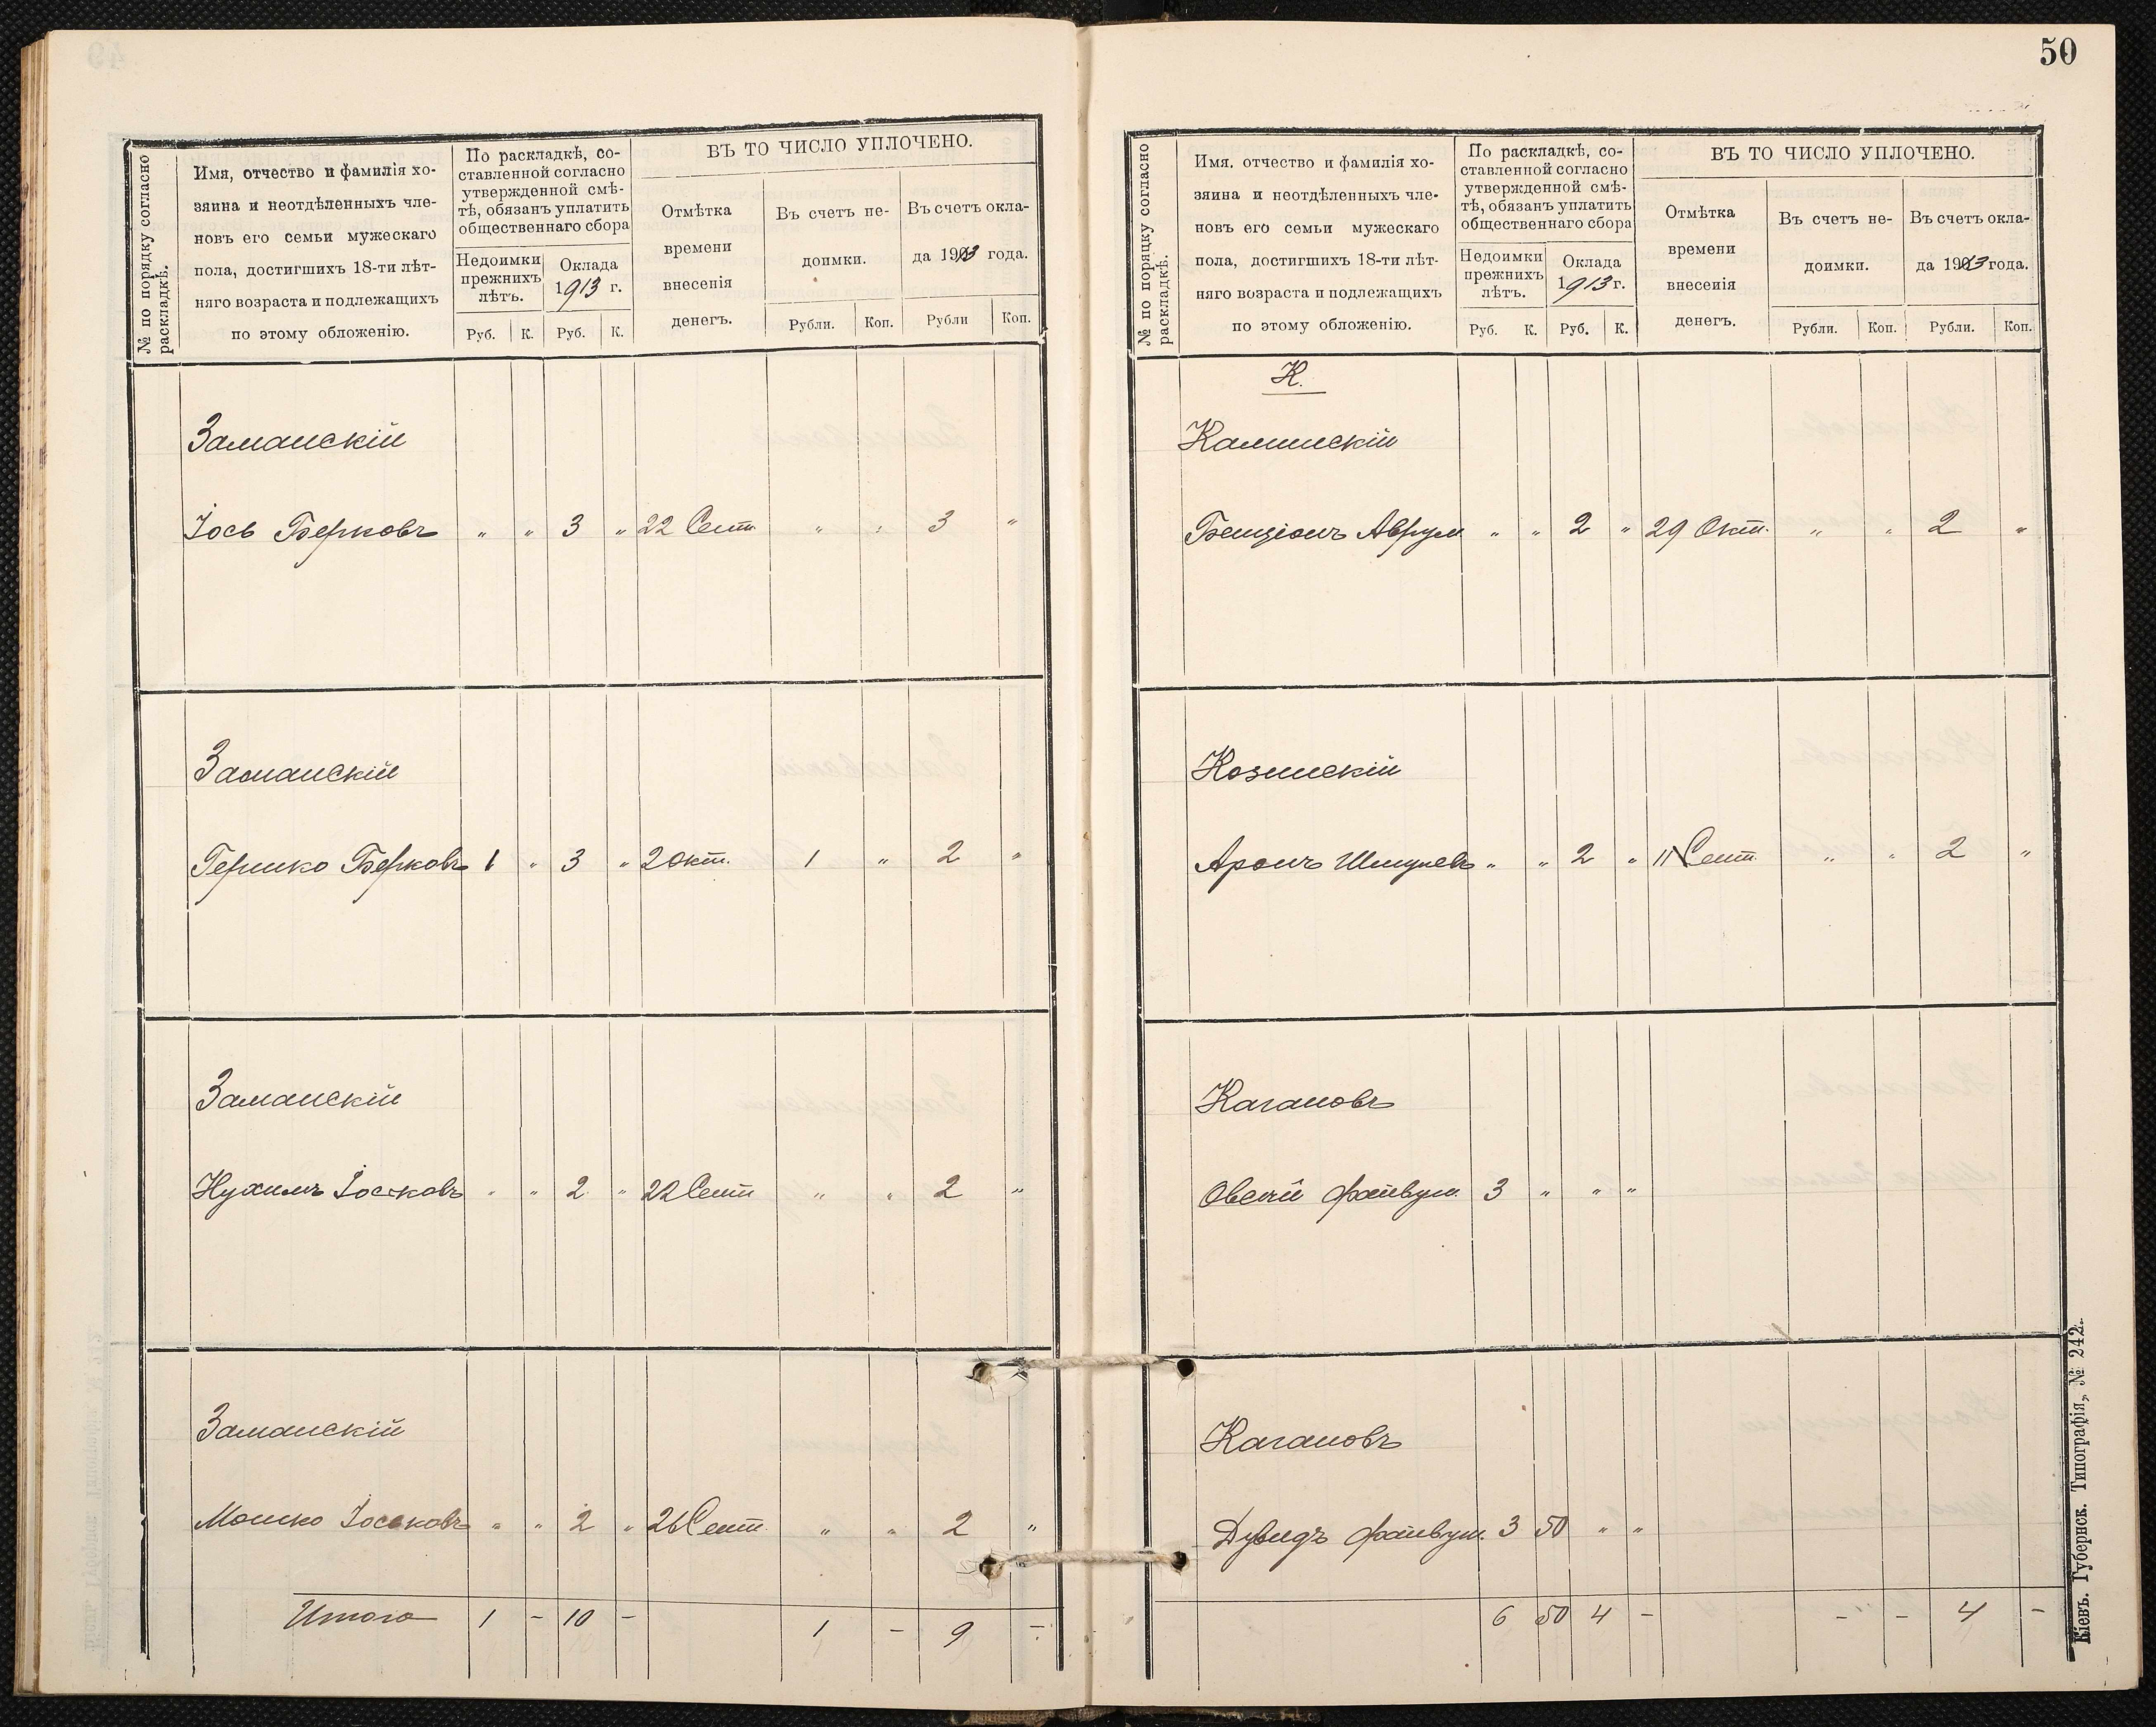 50
№ по порядку согласно раскладкѣ.
Имя, отчество и фамилія хо-
зяина и неотдѣленныхъ чле-
новъ его семьи мужескаго
пола, достигшихъ 18-ти лѣт-
няго возраста и подлежащихъ
по этому обложенію.
По раскладкѣ, со-
ставленной согласно
утвержденной смѣ-
тѣ, обязанъ уплатить
общественнаго сбора
Недоимки прежнихъ лѣтъ.
Оклада 1913 г.
Руб. К. Руб. К.
ВЪ ТО ЧИСЛО УПЛОЧЕНО.
Отмѣтка
времени
внесенія
денегъ.
Въ счетъ не-
доимки.
Рубли. Коп.
Въ счетъ окла-
да 1913 года.
Рубли Коп.
Заманскій
Іось Берковъ " " 3 " 22 Сент. " " 3 "
Заманскій
Гершко Берковъ 1 " 3 " 2 Окт. 1 " 2 "
Заманскій
Нухимъ Іосковъ " " 2 " 22 Сент " " 2 "
Заманскій
Мошко Іосековъ " " 2 " 26 Сент. " " 2 "
Итого 1 - 10 - 1 - 9 -
№ по порядку согласно раскладкѣ.
Имя, отчество и фамилія хо-
зяина и неотдѣленныхъ чле-
новъ его семьи мужескаго
пола, достигшихъ 18-ти лѣт-
няго возраста и подлежащихъ
по этому обложенію.
По раскладкѣ, со-
ставленной согласно
утвержденной смѣ-
тѣ, обязанъ уплатить
общественнаго сбора
Недоимки прежнихъ лѣтъ.
Оклада 1913 г.
Руб. К. Руб. К.
ВЪ ТО ЧИСЛО УПЛОЧЕНО.
Отмѣтка
времени
внесенія
денегъ.
Въ счетъ не-
доимки.
Рубли. Коп.
Въ счетъ окла-
да 1913 года.
Рубли. Коп.
К.
Каминскій
Бенціонъ Аврум. " " 2 " 29 Окт. " " 2 "
Козинскій
Аронъ Шмулевъ " " 2 " 11 Сент. " " 2 "
Кагановъ
Овсей Файвум. 3 " " "
Кагановъ
Дувидъ Файвум. 3 50 " "
6 50 4 - - - 4 -
Кіевъ. Губернск. Типографія, № 242.